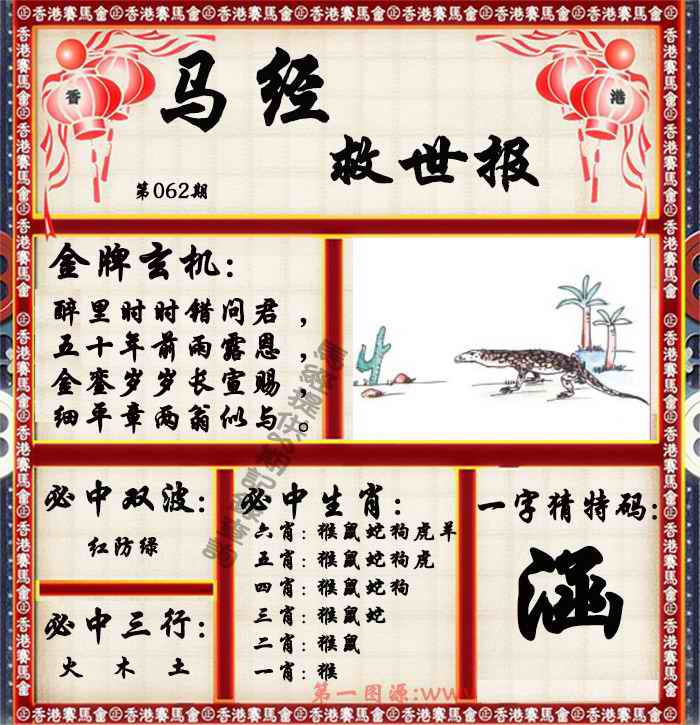 香港賽馬會
香
港
马经
救世报
第062期
金牌玄机：
醉里时时错问君，
五十年前雨露恩，
金銮岁岁长宣赐，
细平章两翁似与。
必中双波：
红防绿
必中三行：
火 木 土
必中生肖：
六肖：猴鼠蛇狗虎羊
五肖：猴鼠蛇狗虎
四肖：猴鼠蛇狗
三肖：猴鼠蛇
二肖：猴鼠
一肖：猴
一字猜特码：
涵
第一图源:www